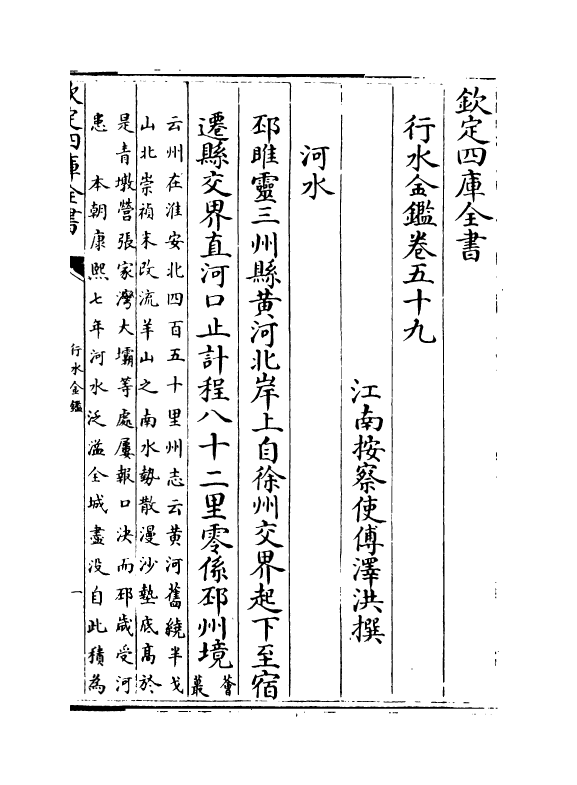 欽定四庫全書
行水金鑑卷五十九
江南按察使傅澤洪撰
河水
邳睢靈三州縣黄河北岸上自徐州交界起下至宿
遷縣交界直河口止計程八十二里零係邳州境
薈
叢
云州在淮安北四百五十里州志云黄河舊繞半戈
山北崇禎末改流羊山之南水勢散漫沙墊底高於
是青墩營張家灣大壩等處屢報口決而邳歳受河
患　本朝康熙七年河水泛溢全城盡没自此積為
欽定四庫全書
行水金鑑
一